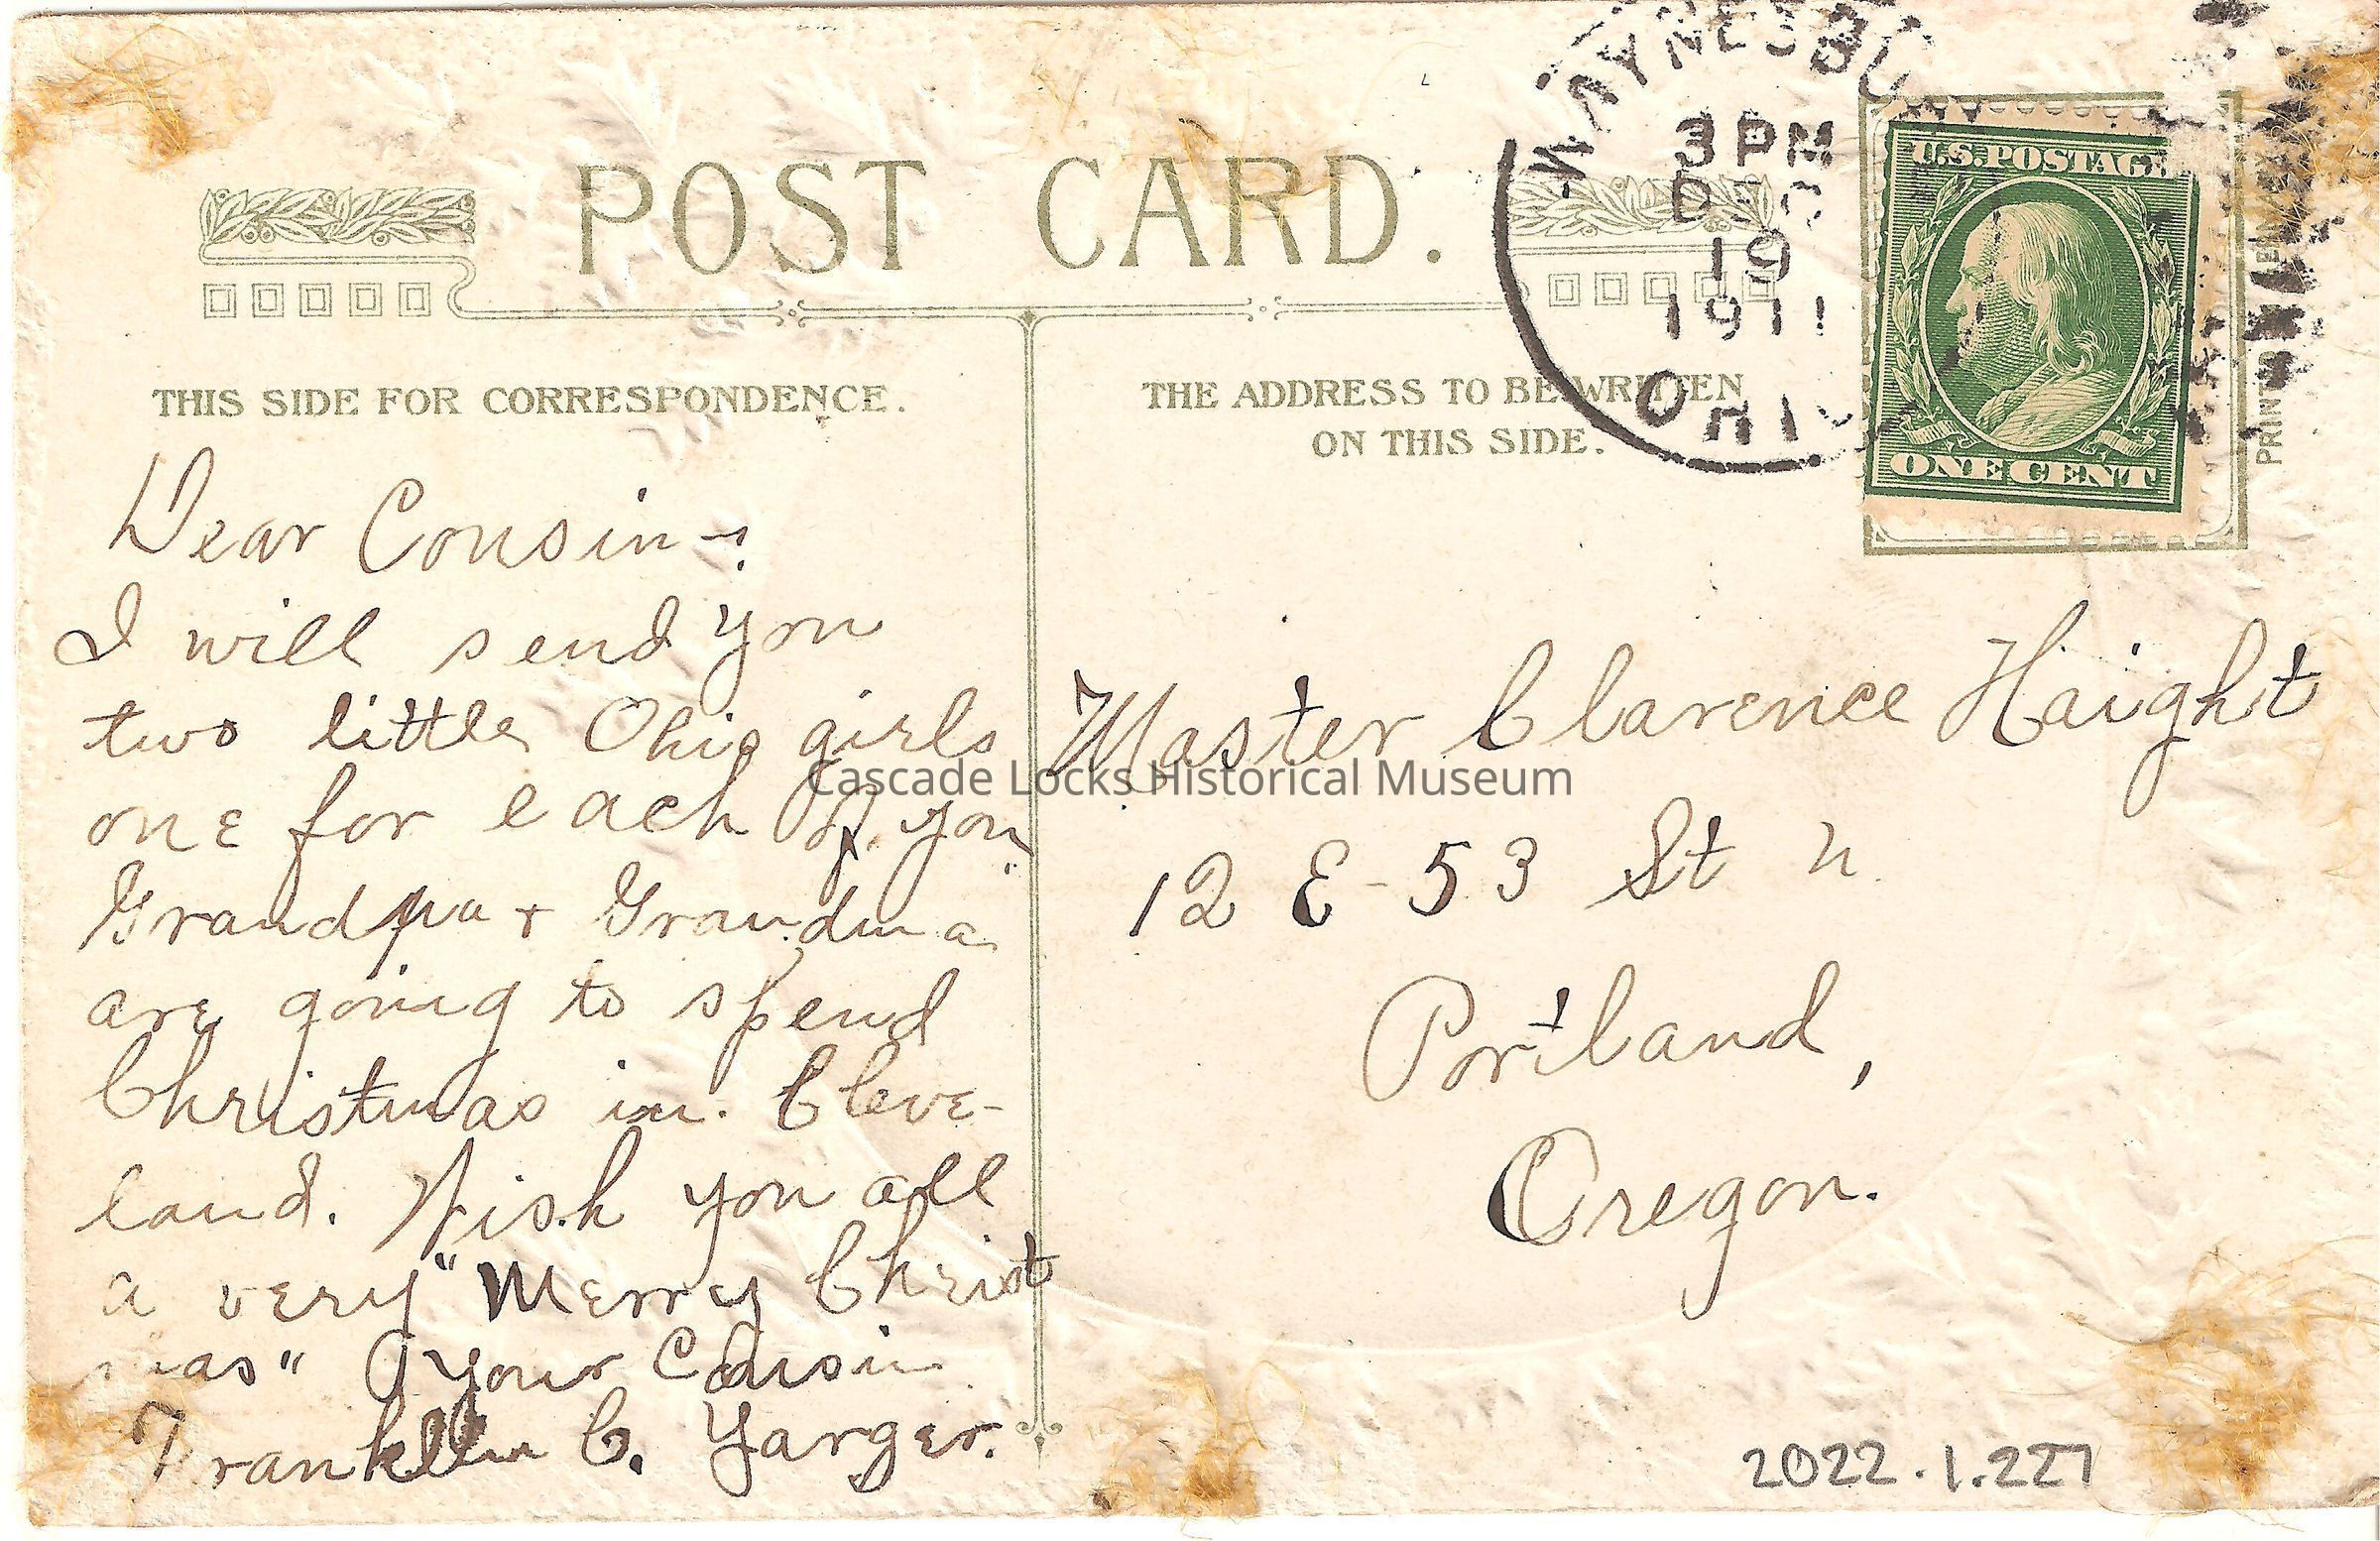 POST CARD.
WAYNESBU
3 PM
DEC
19
1911
OHIO
U.S. POSTAGE
ONE CENT
THIS SIDE FOR CORRESPONDENCE.
THE ADDRESS TO BE WRITTEN
ON THIS SIDE.
Dear Cousin:
I will send you
two little Ohio girls
one for each of you
Grandpa + Grandma
are going to spend
Christmas in Cleve-
land. Wish you all
a very "Merry Christ
mas" Your Cousin
Franklin C. Yarger.
Master Clarence Haight
12 E-53 St N.
Portland,
Oregon.
Cascade Locks Historical Museum
2022.1.227